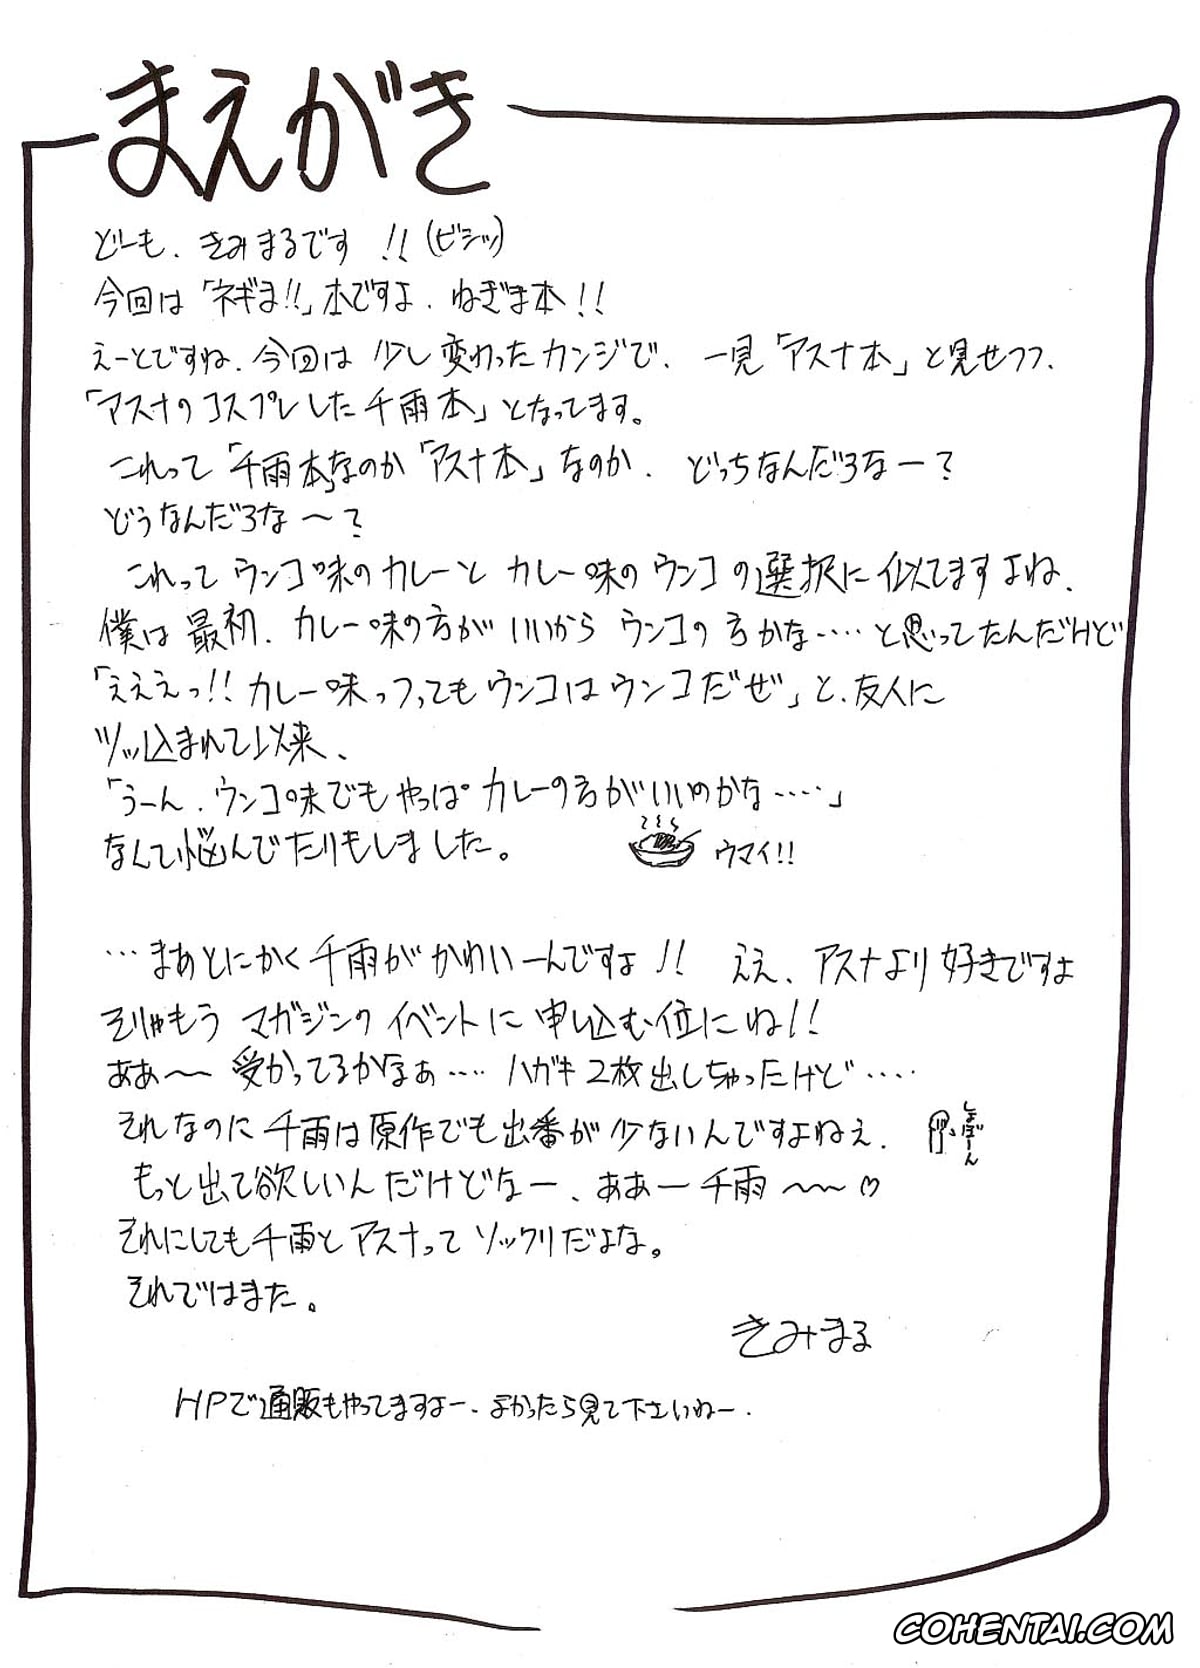 まえがき
どーも、きみまるです!!(ビシッ)
今回は「ネギま!!」本ですよ、ねぎま本!!
えーとですね、今回は少し変わったカンジで、一見「アスナ本」と見せつつ、
「アスナのコスプレした千雨本」となってます。
これって「千雨本」なのか「アスナ本」なのか、どっちなんだろなー?
どうなんだろな〜?
これってウンコ味のカレーとカレー味のウンコの選択に似てますよね、
僕は最初、カレー味の方がいいからウンコの方かな……と思ってたんだけど
「えええっ!!カレー味っつってもウンコはウンコだぜ」と、友人に
ツッ込まれて以来、
「うーん、ウンコ味でもやっぱカレーの方がいいのかな……」
なんて悩んでたりもしました。
ウマイ!!
…まあとにかく千雨がかわいーんですよ!! ええ、アスナより好きですよ
そりゃもうマガジンのイベントに申し込む位にね!!
ああ〜受かってるかなぁ……ハガキ2枚出しちゃったけど……
それなのに千雨は原作でも出番が少ないんですよねぇ、
しょぼーん
もっと出て欲しいんだけどなー、ああー千雨〜〜♡
それにしても千雨とアスナってソックリだよな。
それではまた。
きみまる
HPで通販もやってますよー、よかったら見て下さいねー、
COHENTAI.COM